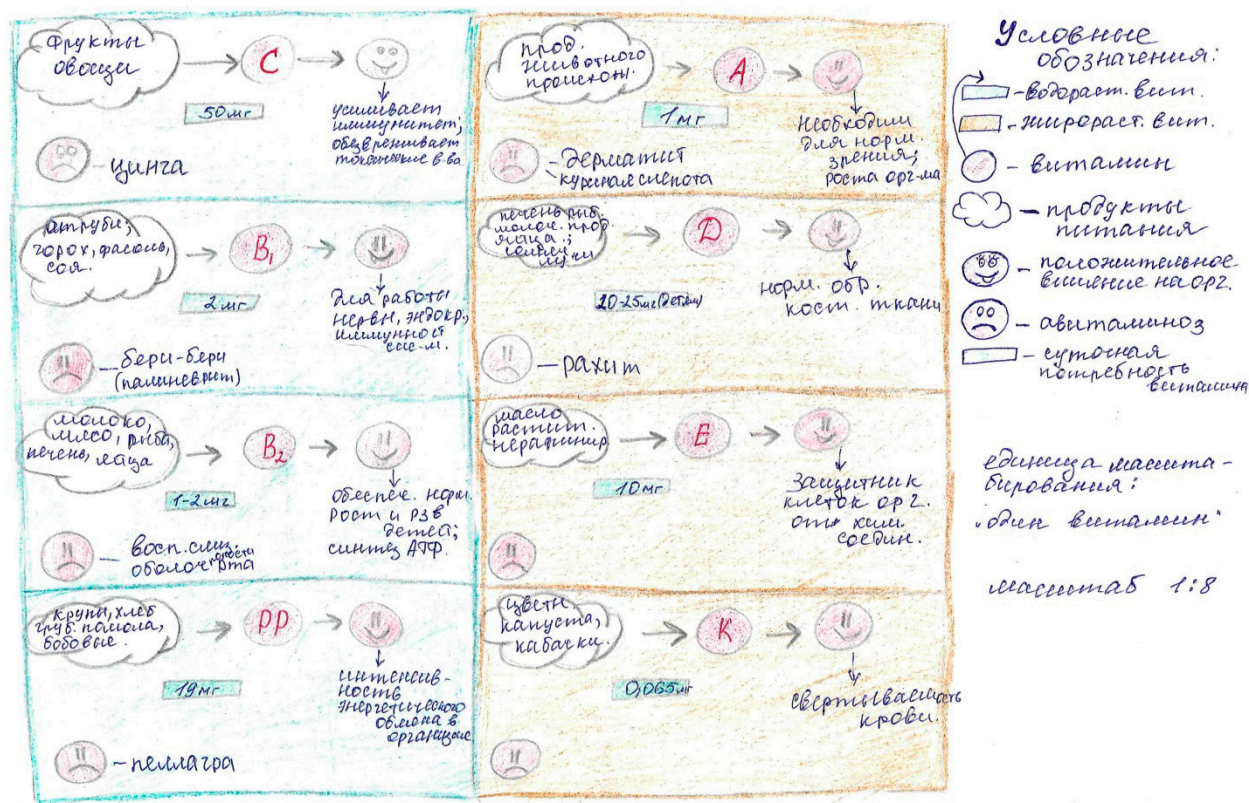 Фрукты
овощи
С
50 мг
усиливает
иммунитет,
обезвреживает
токсические в-ва
- цинга
отруби,
горох, фасоль,
соя.
В₁
2 мг
для работы
нервн, эндокр.,
иммунной
сис-м.
- бери-бери
(палиневрит)
молоко,
мясо, рыба,
печень, яйца
В₂
1-2 мг
обеспеч. норм.
рост и рзв
детей;
синтез АТФ.
- восп. слиз.
оболоч. полости рта
крупы, хлеб
груб. помола,
бобовые.
РР
19 мг
интенсив-
ность
энергетического
обмена в
организме
- пеллагра
прод.
животного
происхож.
А
1 мг
необходим
для норм.
зрения;
роста орг-ма
- дерматит
куриная слепота
печень рыб.
молоч. прод.
яйца.;
солнеч.
лучи
D
20-25 мг (детям)
норм. обр.
кост. ткани
- рахит
масло
растит.
нерафинир.
Е
10 мг
Защитник
клеток орг.
от хим.
соедин.
цветн.
капуста,
кабачки.
К
0,065 мг
свертываемость
крови.
Условные
обозначения:
- водораст. вит.
- жирораст. вит.
- витамин
- продукты
питания
- положительное
влияние на орг.
- авитаминоз
- суточная
потребность
витамина
единица масшта-
бирования:
"один витамин"
масштаб 1:8